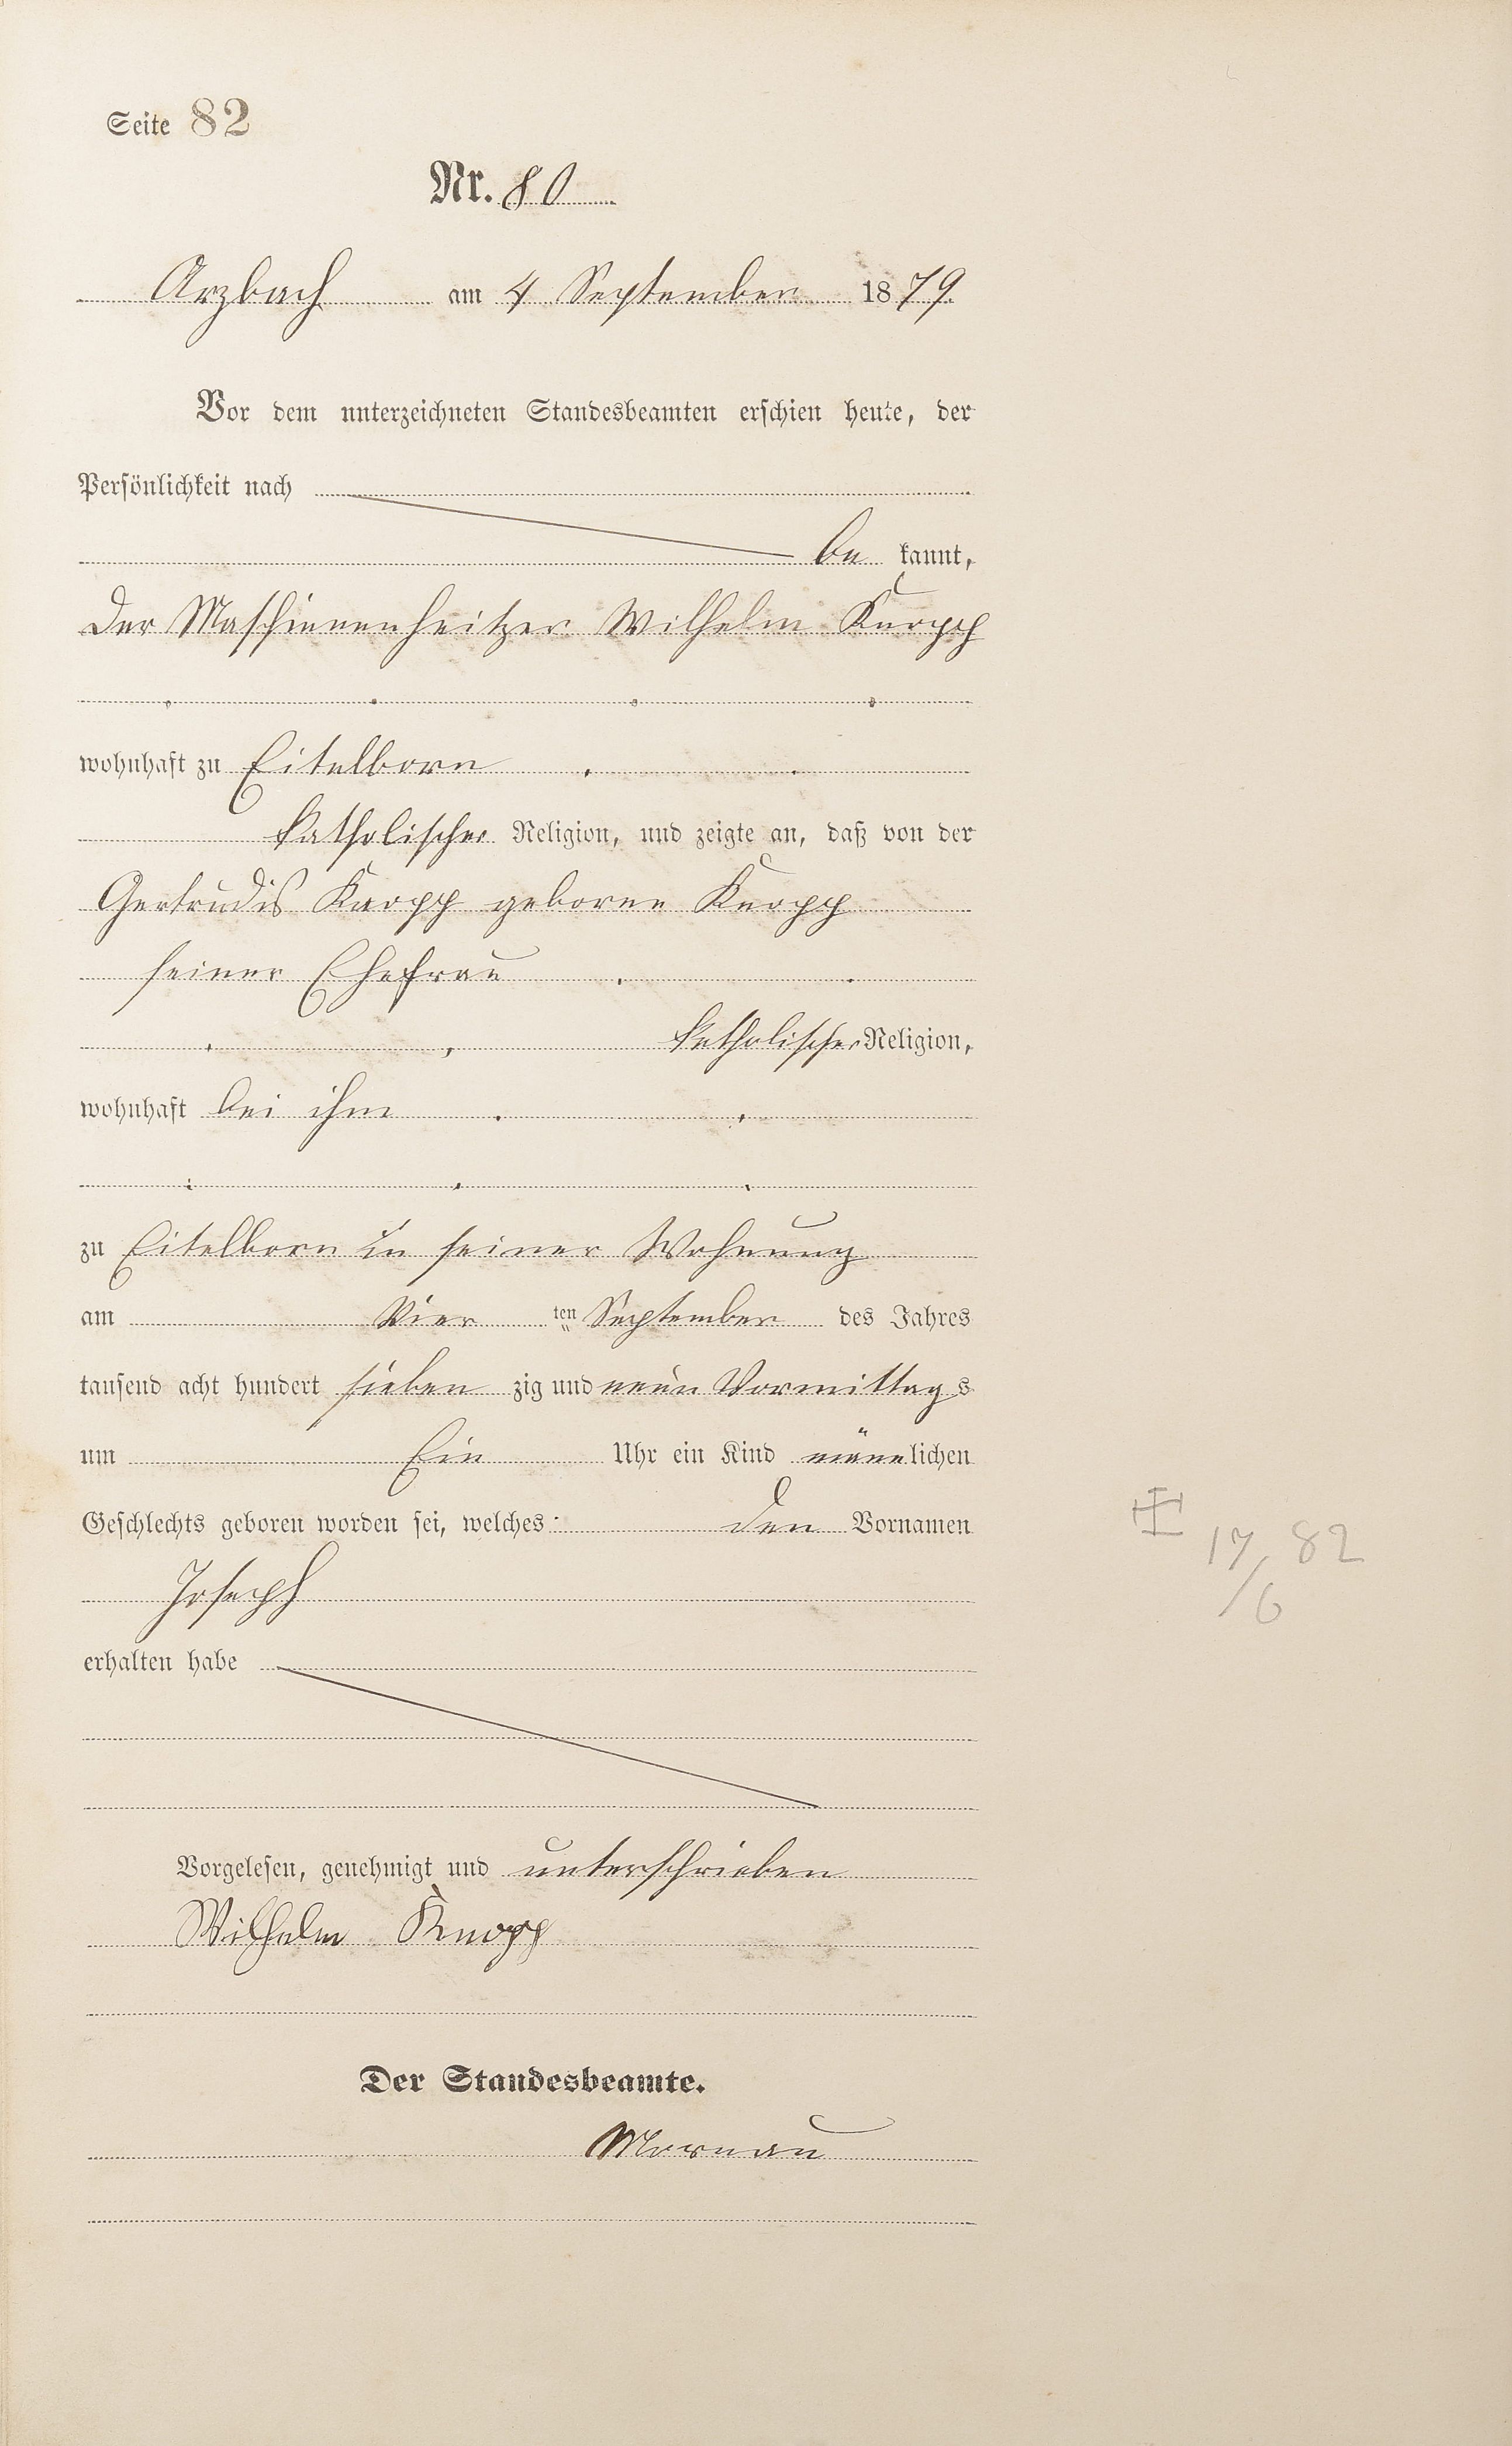 Seite 82
Nr. 80
Arzbach am 4 September 1879.
Vor dem unterzeichneten Standesbeamten erschien heute, der
Persönlichkeit nach
be kannt,
der Maschienenheitzer Wilhelm Knopp
wohnhaft zu Eitelborn
katholischer Religion, und zeigte an, daß von der
Gertrudis Knopp geborne Knopp
seiner Ehefrau
katholischer Religion,
wohnhaft bei ihm
zu Eitelborn in seiner Wohnung
am Vier ten September des Jahres
tausend acht hundert sieben zig und neun Vormittags
um Ein Uhr ein Kind männlichen
Geschlechts geboren worden sei, welches den Vornamen
Joseph
erhalten habe
17/6 82
Vorgelesen, genehmigt und unterschrieben
Wilhelm Knopp
Der Standesbeamte.
Mornau